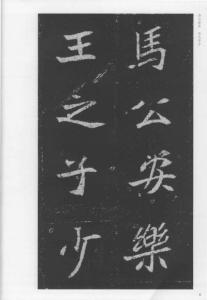 馬公安樂
王之子少